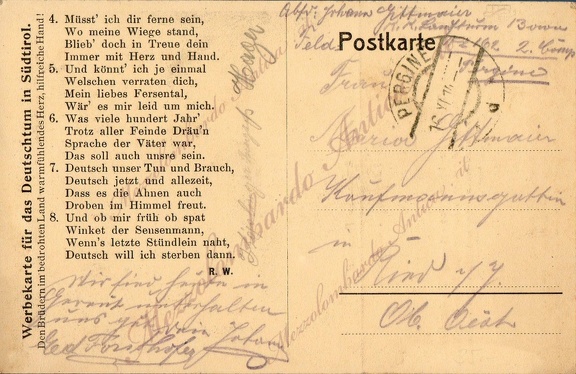 Werbekarte für das Deutschtum in Südtirol.
Den Brüdern im bedrohten Land warmfühlendes Herz, hilfreiche Hand!
4. Müsst' ich dir ferne sein,
Wo meine Wiege stand,
Blieb' doch in Treue dein
Immer mit Herz und Hand.
5. Und könnt' ich je einmal
Welschen verraten dich,
Mein liebes Fersental,
Wär' es mir leid um mich.
6. Was viele hundert Jahr'
Trotz aller Feinde Dräu'n
Sprache der Väter war,
Das soll auch unsre sein.
7. Deutsch unser Tun und Brauch,
Deutsch jetzt und allezeit,
Dass es die Ahnen auch
Droben im Himmel freut.
8. Und ob mir früh ob spat
Winket der Sensenmann,
Wenn's letzte Stündlein naht,
Deutsch will ich sterben dann.
R. W.
Wir sind heute in
uns gut Dein Johann
Postkarte
Abs. Johann Gittmaier
K. K. Landsturm
2. Comp
PERGINE
Frau
Maria Gittmaier
Kaufmannsgattin
in
Ried
Ob. Östr
Mezzolombardo Antiquariat